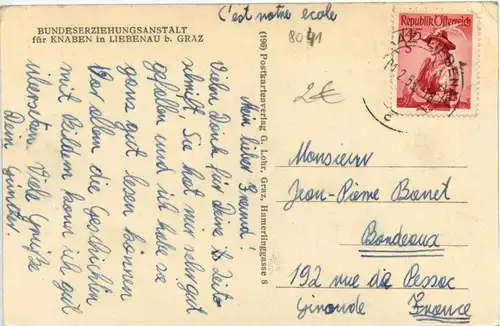 C'est notre ecole
BUNDESERZIEHUNGSANSTALT
für KNABEN in LIEBENAU b. GRAZ
8041
2€
Mein lieber Freund!
Vielen Dank für Deine Zeit-
schrift. Sie hat mir sehr gut
gefallen und ich habe sie
ganz gut lesen können.
Vor allem die Geschichten
mit Bildern konnte ich gut
übersetzen. Viele Grüße
Dein Günther.
(190) Postkartenverlag G. Lohr, Graz, Hamerlinggasse 8
Republik Österreich
Monsieur
Jean-Pierre Bonet
Bordeaux
192 rue de Pessac
Gironde France